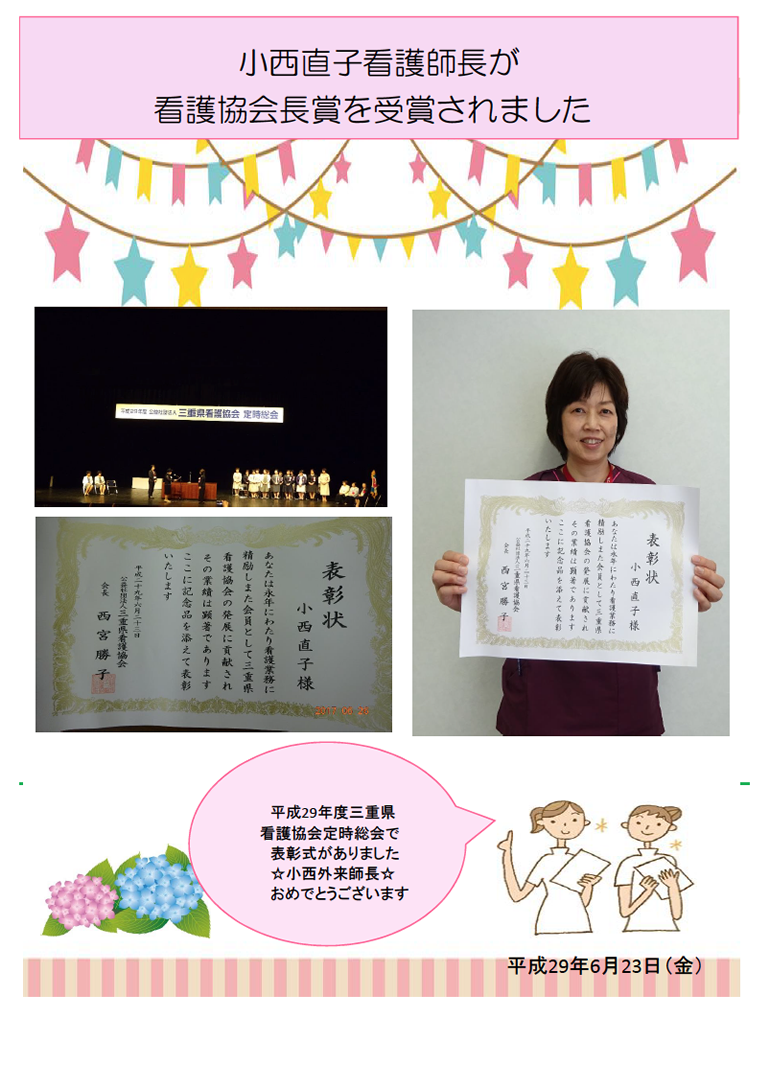 小西直子看護師長が
看護協会長賞を受賞されました
平成29年度 公益社団法人 三重県看護協会 定時総会
表彰状
小西直子様
あなたは永年にわたり看護業務に
精励しまた会員として三重県
看護協会の発展に貢献され
その業績は顕著であります
ここに記念品を添えて表彰
いたします
平成二十九年六月二十三日
公益社団法人三重県看護協会
会長 西宮勝子
2017 06 23
表彰状
小西直子様
あなたは永年にわたり看護業務に
精励しまた会員として三重県
看護協会の発展に貢献され
その業績は顕著であります
ここに記念品を添えて表彰
いたします
平成二十九年六月二十三日
公益社団法人三重県看護協会
会長 西宮勝子
平成29年度三重県
看護協会定時総会で
表彰式がありました
☆小西外来師長☆
おめでとうございます
平成29年6月23日(金)